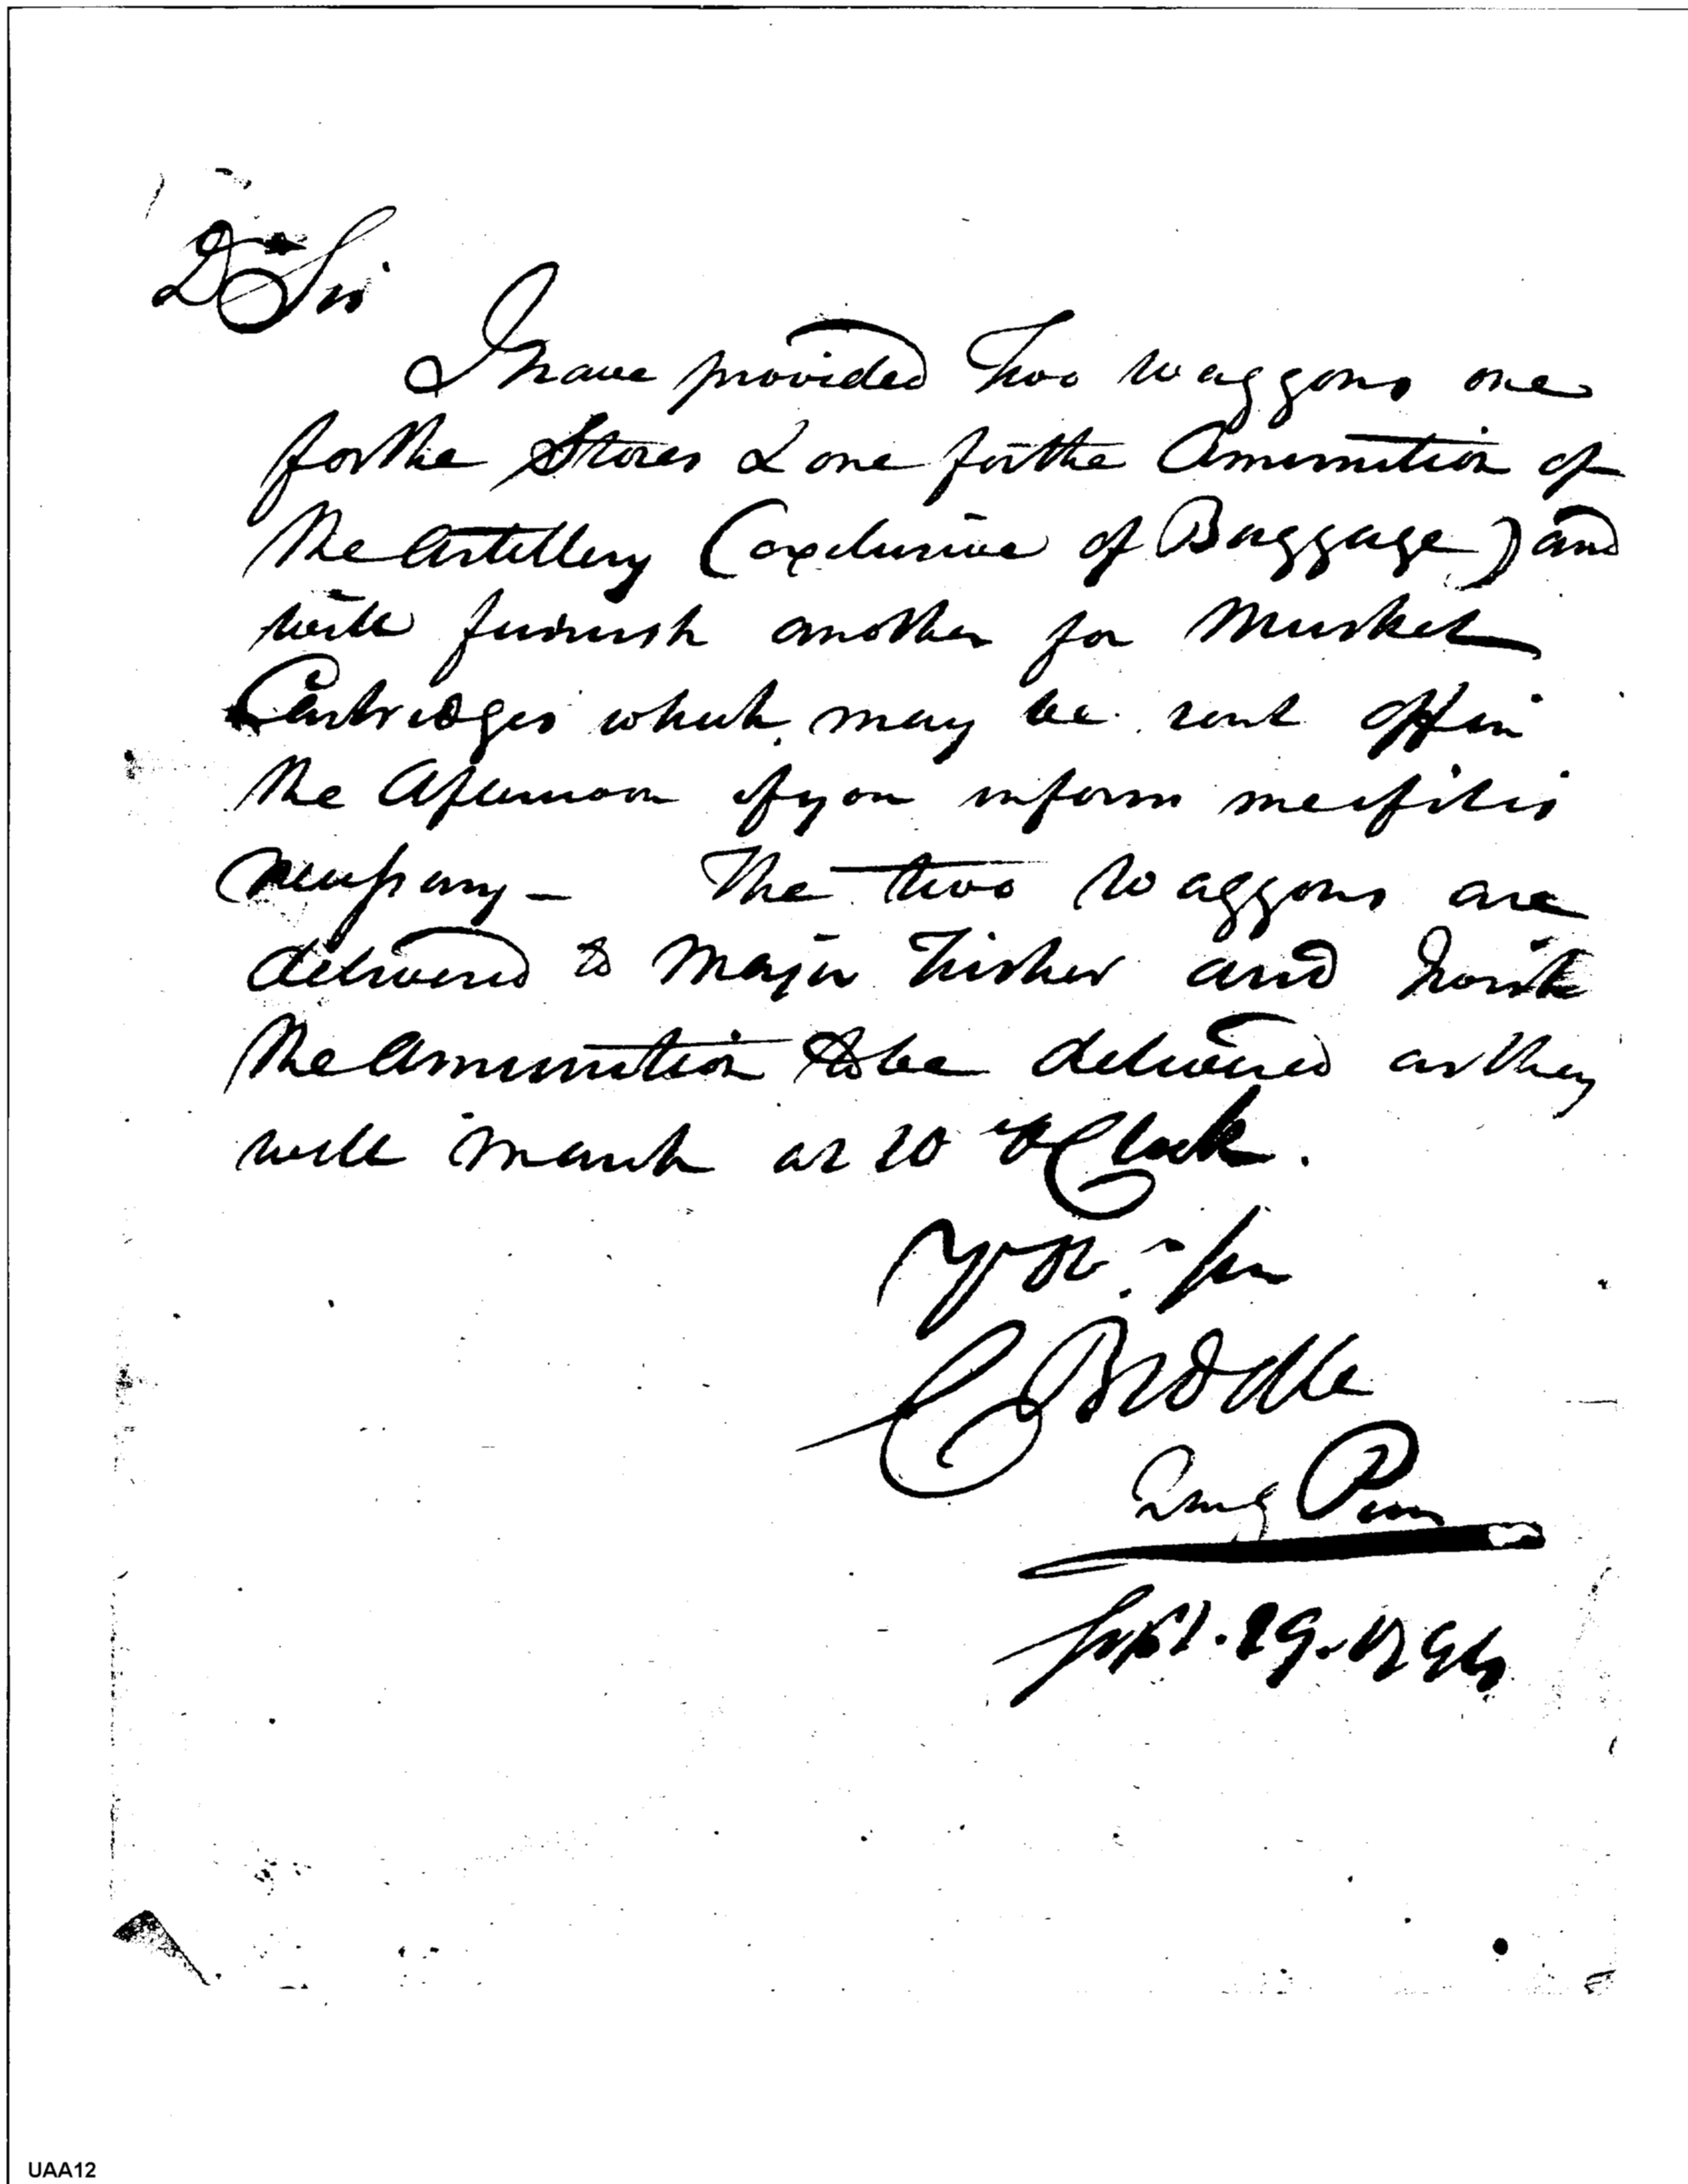 Dr Sir
I have provided Two waggons one
for the Stores & one for the Amunition of
the Artillery (exclusive of Baggage) and
will furnish another for Musket
Cartridges which may be sent off in
the Afternoon if you inform me if it is
necessary — The two waggons are
delivered to Major Fisher and
the Amunition to be delivered as they
will march at 10 oClock.
Yrs
C Biddle
QMG Penn
Sept. 29. 1794
UAA12